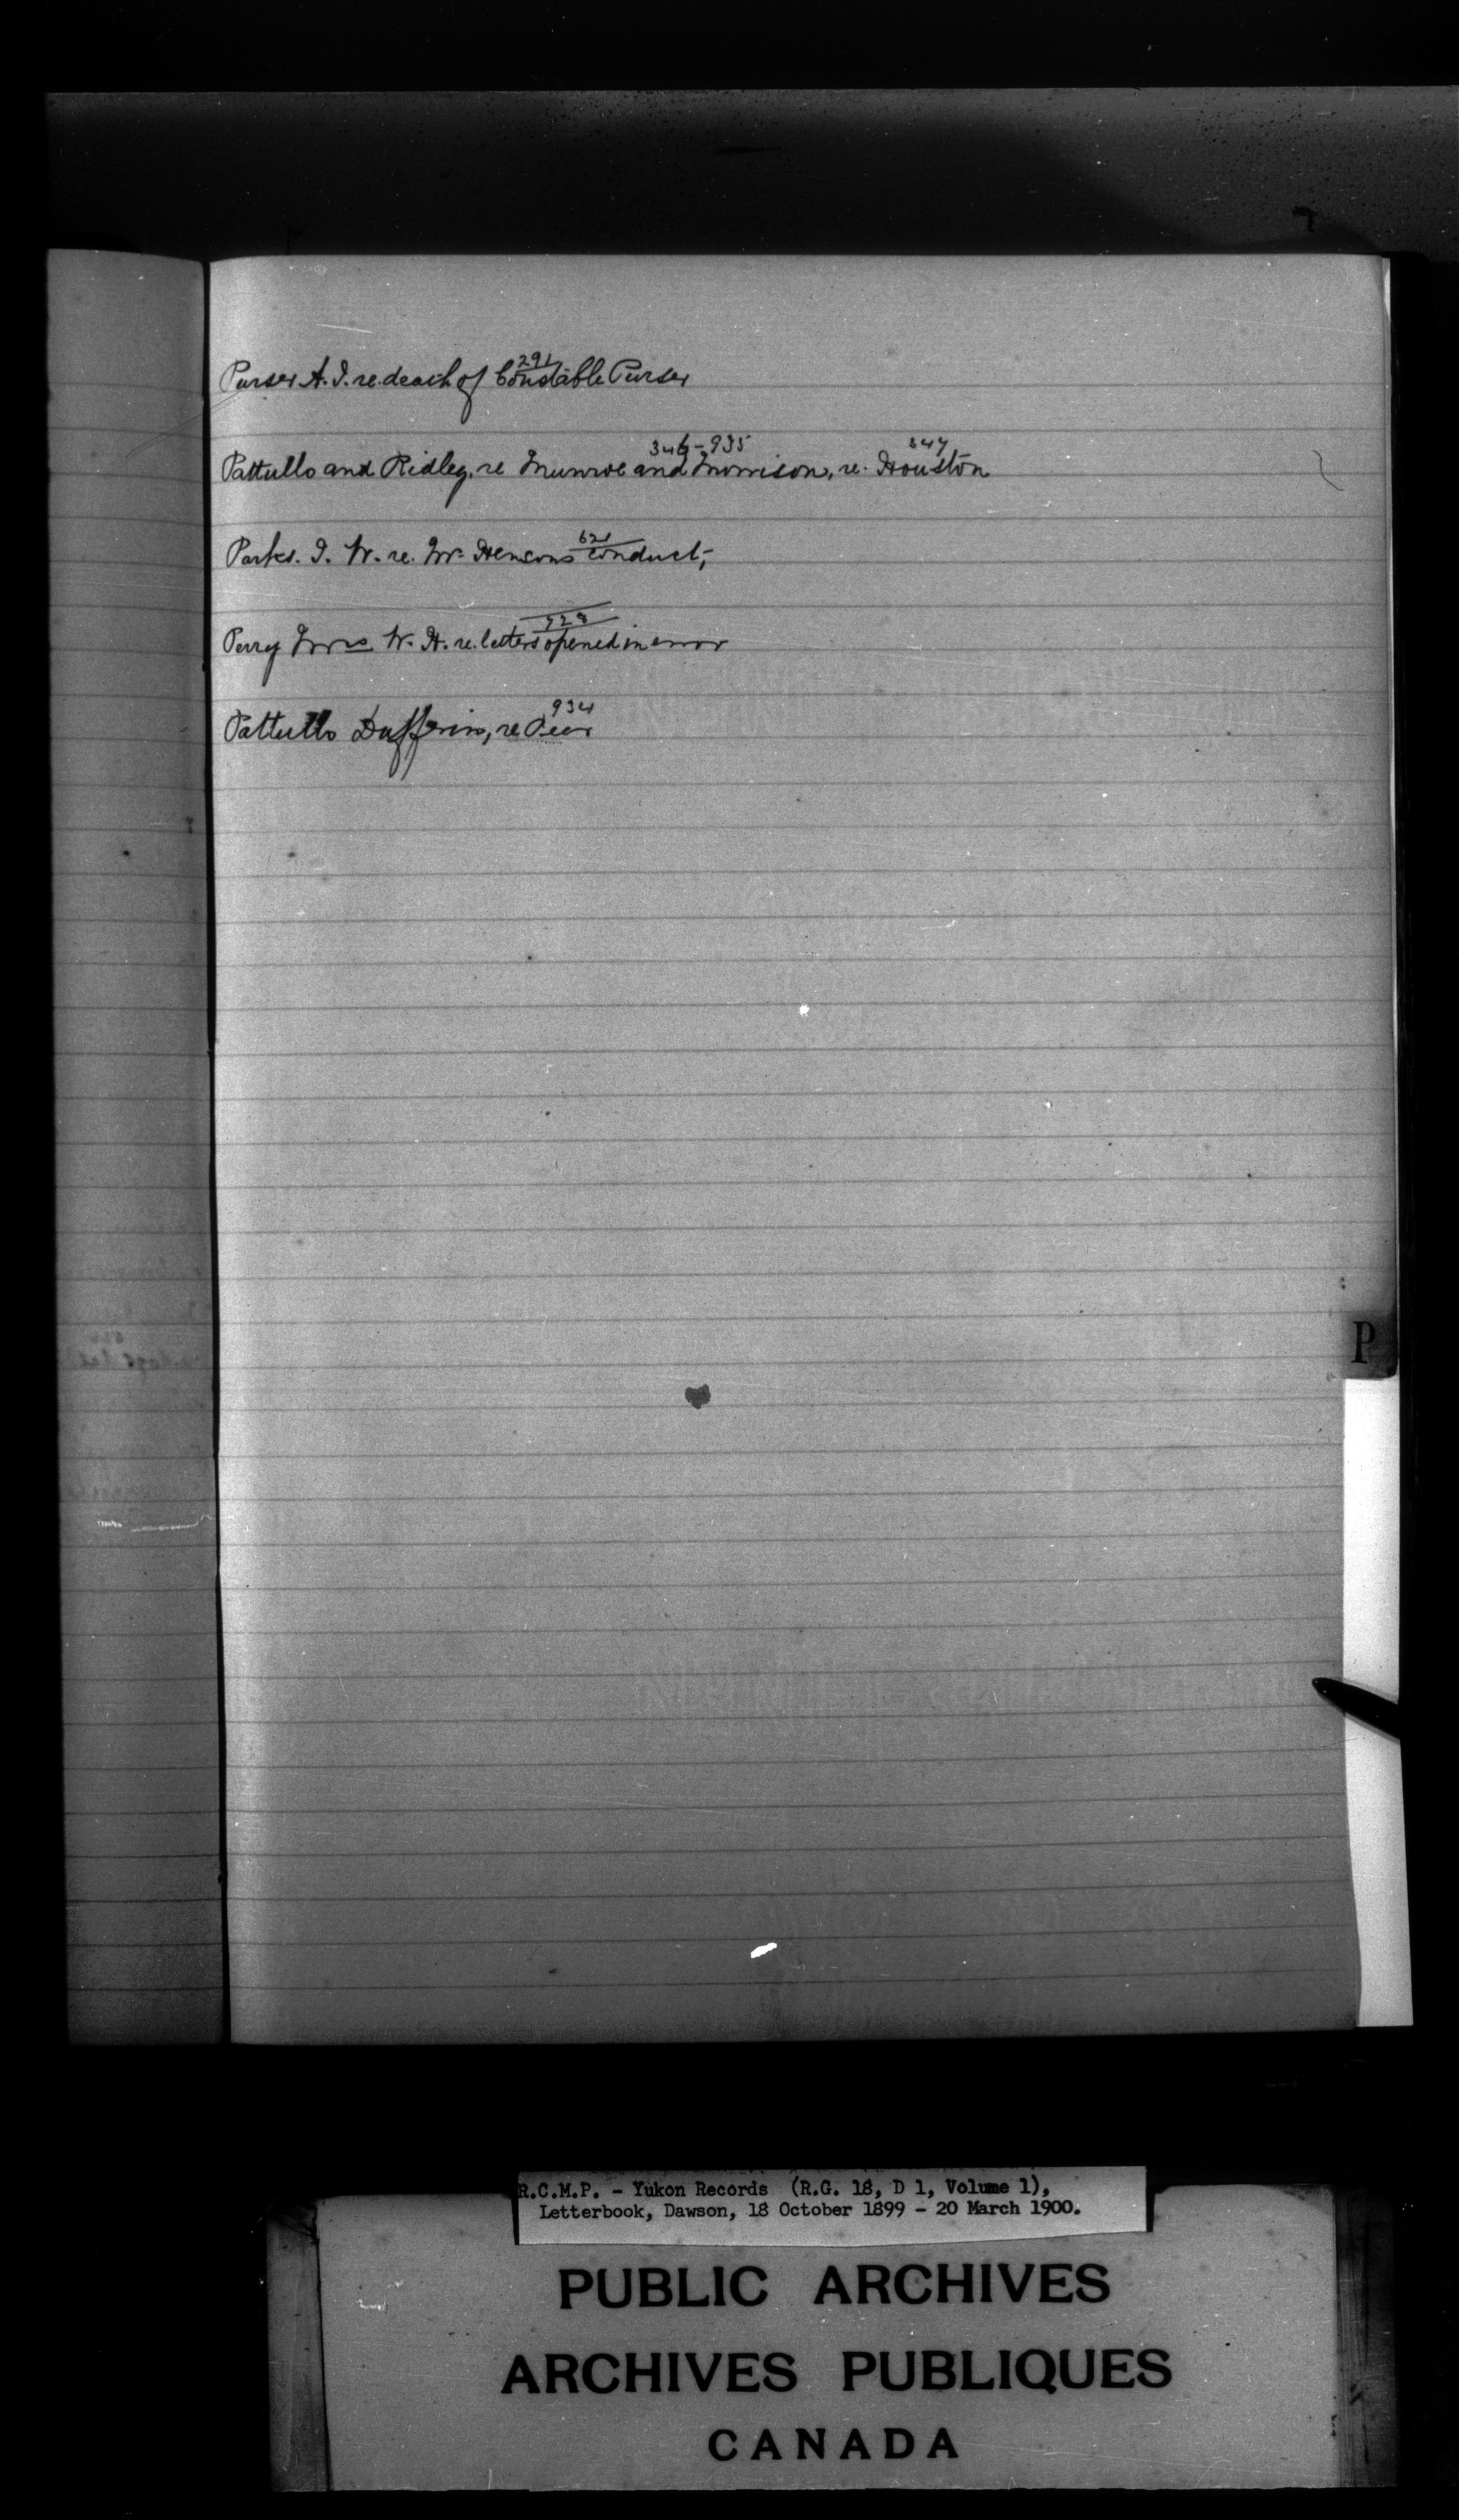 291
Purser A. I. re. death of Constable Purser
346-935 347
Pattullo and Ridley, re Munroe and Morrison, re. Houston
621
Parks. I. W. re. Mr. Hensons conduct,
728
Perry Mrs W. H. re. letters opened in error
934
Pattullo Dufferin, re Peer
P
R.C.M.P. - Yukon Records (R.G. 18, D 1, Volume 1),
Letterbook, Dawson, 18 October 1899 - 20 March 1900.
PUBLIC ARCHIVES
ARCHIVES PUBLIQUES
CANADA